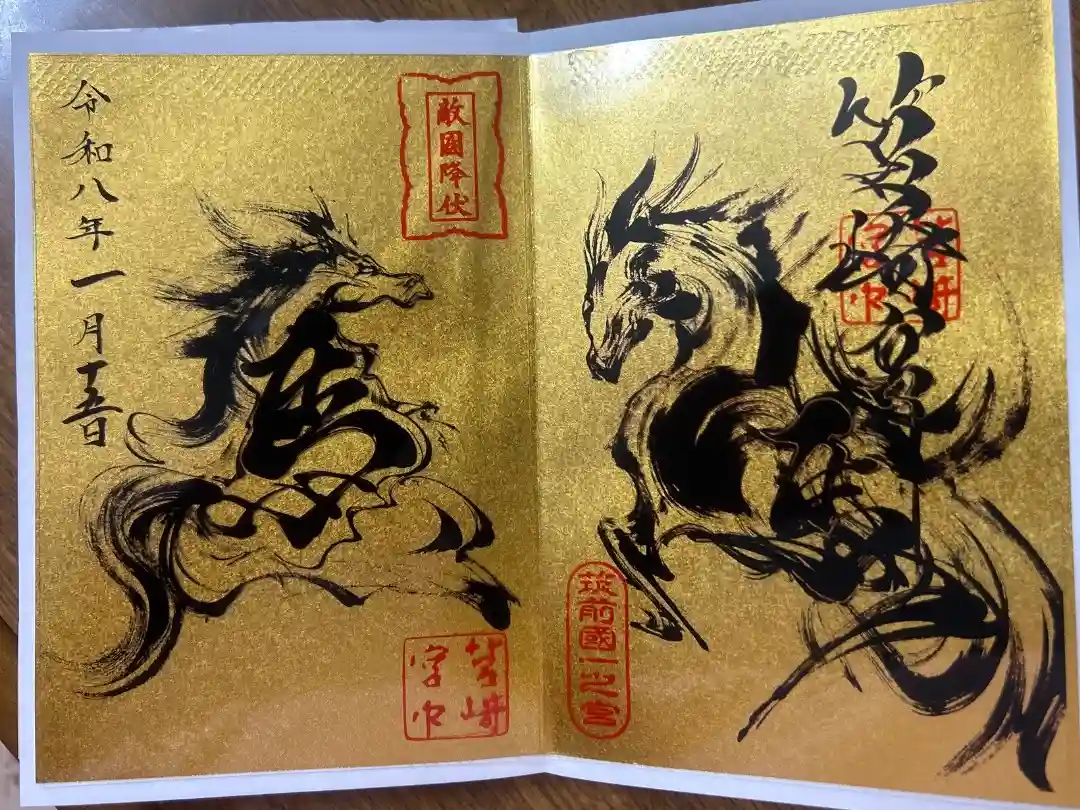 筥崎宮
筥崎
宮印
馬
筑前國一之宮
敵國降伏
馬
令和八年一月十五日
筥崎
宮印